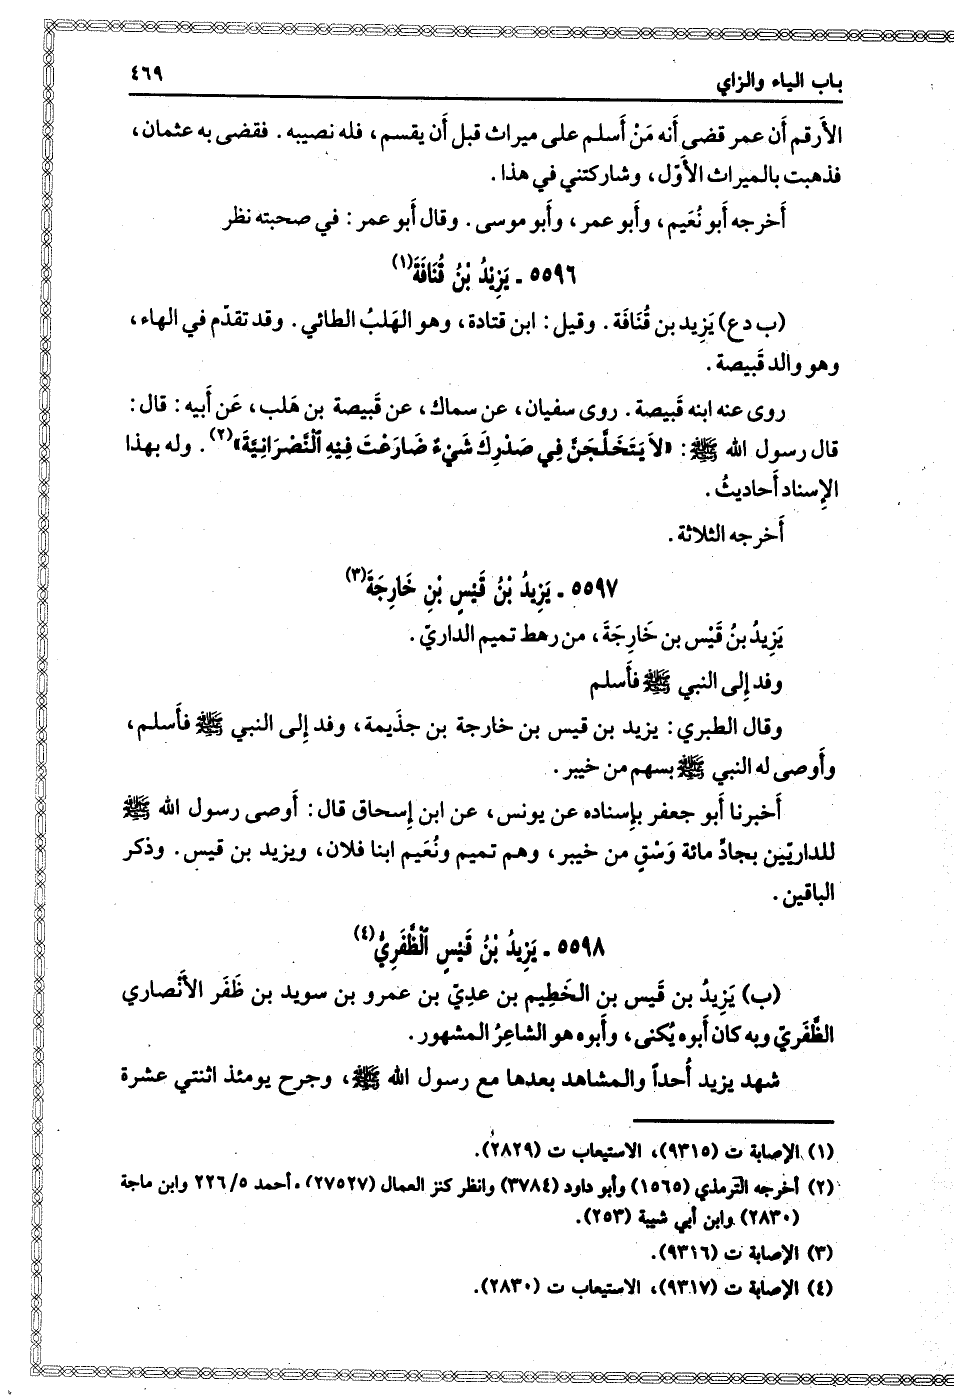 باب الياء والزاي
٤٦٩
الأَرقم أَن عمر قضى أَنه مَنْ أَسلم على ميراث قبل أَن يقسم، فله نصيبه. فقضى به عثمان،
فذهبت بالميراث الأَوّل، وشاركتني في هذا.
أَخرجه أَبو نُعَيم، وأَبو عمر، وأَبو موسى. وقال أَبو عمر: في صحبته نظر
٥٥٩٦ ـ يَزِيْدُ بْنُ قُنَافَةَ(١)
(ب دع) يَزِيد بن قُنَافَة. وقيل: ابن قتادة، وهو الهَلبُ الطائي. وقد تقدّم في الهاء،
وهو والد قَبيصة.
روى عنه ابنه قَبيصة. روى سفيان، عن سماك، عن قَبيصة بن هَلب، عَن أَبيه: قال:
قال رسول الله ﷺ: «لاَ يَتَخَلَّجَنَّ فِي صَدْرِكَ شَيْءٌ ضَارَعْتَ فِيْهِ ٱلنَّصْرَانِيَّةَ»(٢). وله بهذا
الإِسناد أَحاديثُ.
أَخرجه الثلاثة.
٥٥٩٧ ـ يَزِيدُ بْنُ قَيْسٍ بْنِ خَارِجَةَ(٣)
يَزِيدُ بنُ قَيْس بن خَارِجَةَ، من رهط تميم الداريّ.
وفد إِلى النبي ﷺ فأَسلم
وقال الطبري: يزيد بن قيس بن خارجة بن جذَيمة، وفد إِلى النبي ﷺ فأَسلم،
وأَوصى له النبي ﷺ بسهم من خيبر.
أَخبرنا أَبو جعفر بإِسناده عن يونس، عن ابن إِسحاق قال: أَوصى رسول الله ﷺ
للداريّين بجادِّ مائة وَسْقٍ من خيبر، وهم تميم ونُعَيم ابنا فلان، ويزيد بن قيس. وذكر
الباقين.
٥٥٩٨ ـ يَزِيدُ بْنُ قَيْسٍ ٱلظَّفَرِيُّ(٤)
(ب) يَزِيدُ بن قَيس بن الخَطِيم بن عدِيّ بن عمرو بن سويد بن ظَفَر الأَنْصاري
الظَّفَريّ وبه كان أَبوه يُكنى، وأَبوه هو الشاعِرُ المشهور.
شهد يزيد أُحداً والمشاهد بعدها مع رسول الله ﷺ، وجرح يومئذ اثنتي عشرة
(١) الإصابة ت (٩٣١٥)، الاستيعاب ت (٢٨٢٩).
(٢) أخرجه الترمذي (١٥٦٥) وأبو داود (٣٧٨٤) وانظر كنز العمال (٢٧٥٢٧)، أحمد ٢٢٦/٥ وابن ماجة
(٢٨٣٠) وابن أبي شيبة (٢٥٣).
(٣) الإصابة ت (٩٣١٦).
(٤) الإصابة ت (٩٣١٧)، الاستيعاب ت (٢٨٣٠).